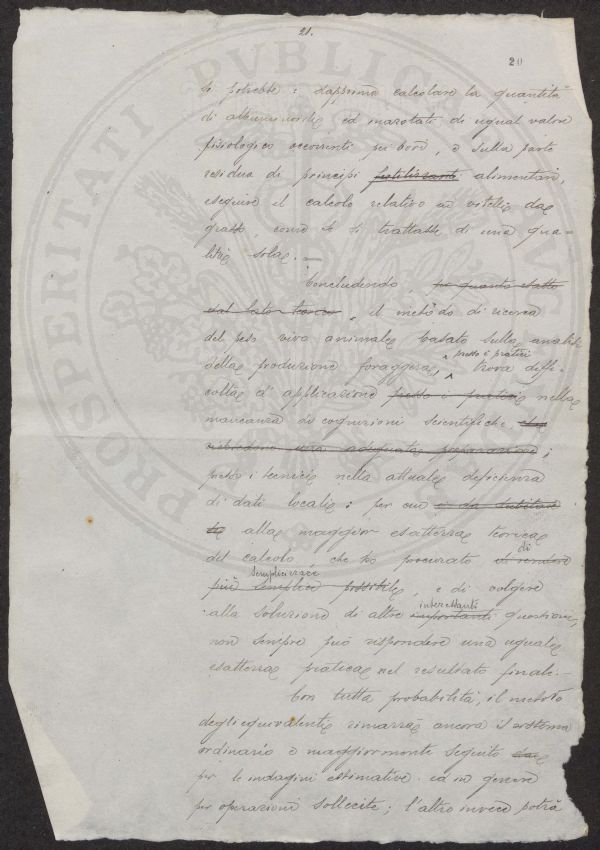 21.
20
si potrebbe: dapprima calcolare la quantità
di albuminoidi ed inazotati di ugual valore
fisiologico occorrenti pei bovi, e sulla parte
residua di principi fertilizzanti alimentari,
eseguire il calcolo relativo ai vitelli da
grasso, come se si trattasse di una qua=
lità sola. —
Concludendo, per quanto esatto
dal lato teorico, il metodo di ricerca
del peso vivo animale basato sulla analisi
della produzione foraggera,
presso i pratici
trova diffi-
coltà d'applicazione presso i pratici nella
mancanza di cognizioni scientifiche,
richiedono una adeguata preparazione;
presso i tecnici nella attuale deficienza
di dati locali; per cui
alla maggior esattezza teorica
di
del calcolo, che ho procurato di rendere
semplicizzare
più semplice possibile, e di volgere
interessanti
alla soluzione di altre importanti questioni,
non sempre può rispondere una uguale
esattezza pratica nel resultato finale. —
Con tutta probabilità, il metodo
degli equivalenti rimarrà ancora il sistema
ordinario e maggiormente seguito
per le indagini estimative ed in genere
per operazioni sollecite; l'altro invece potrà
PROSPERITATI PUBLICAE